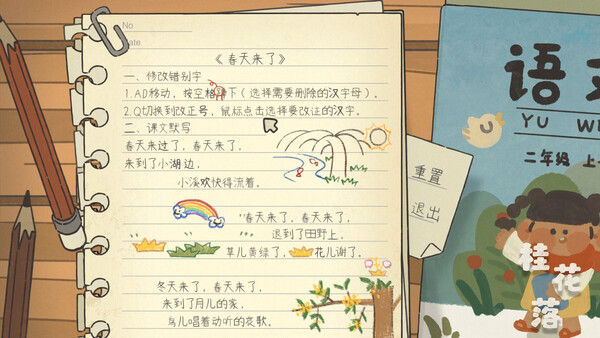 No
Date
《春天来了》
一、修改错别字
1.AD移动，按空格蹲下（选择需要删除的汉字母）。
2.Q切换到改正号，鼠标点击选择要改证的汉字。
二、课文默写
春天来过了，春天来了，
来到了小湖边，
小溪欢快得流着。
春天来了，春天来了，
退到了田野上，
草儿黄绿了，花儿谢了。
冬天来了，春天来了，
来到了月儿的家，
鸟儿唱着动听的哀歌。
重置
退出
语文
YU WE
二年级 上
桂花落